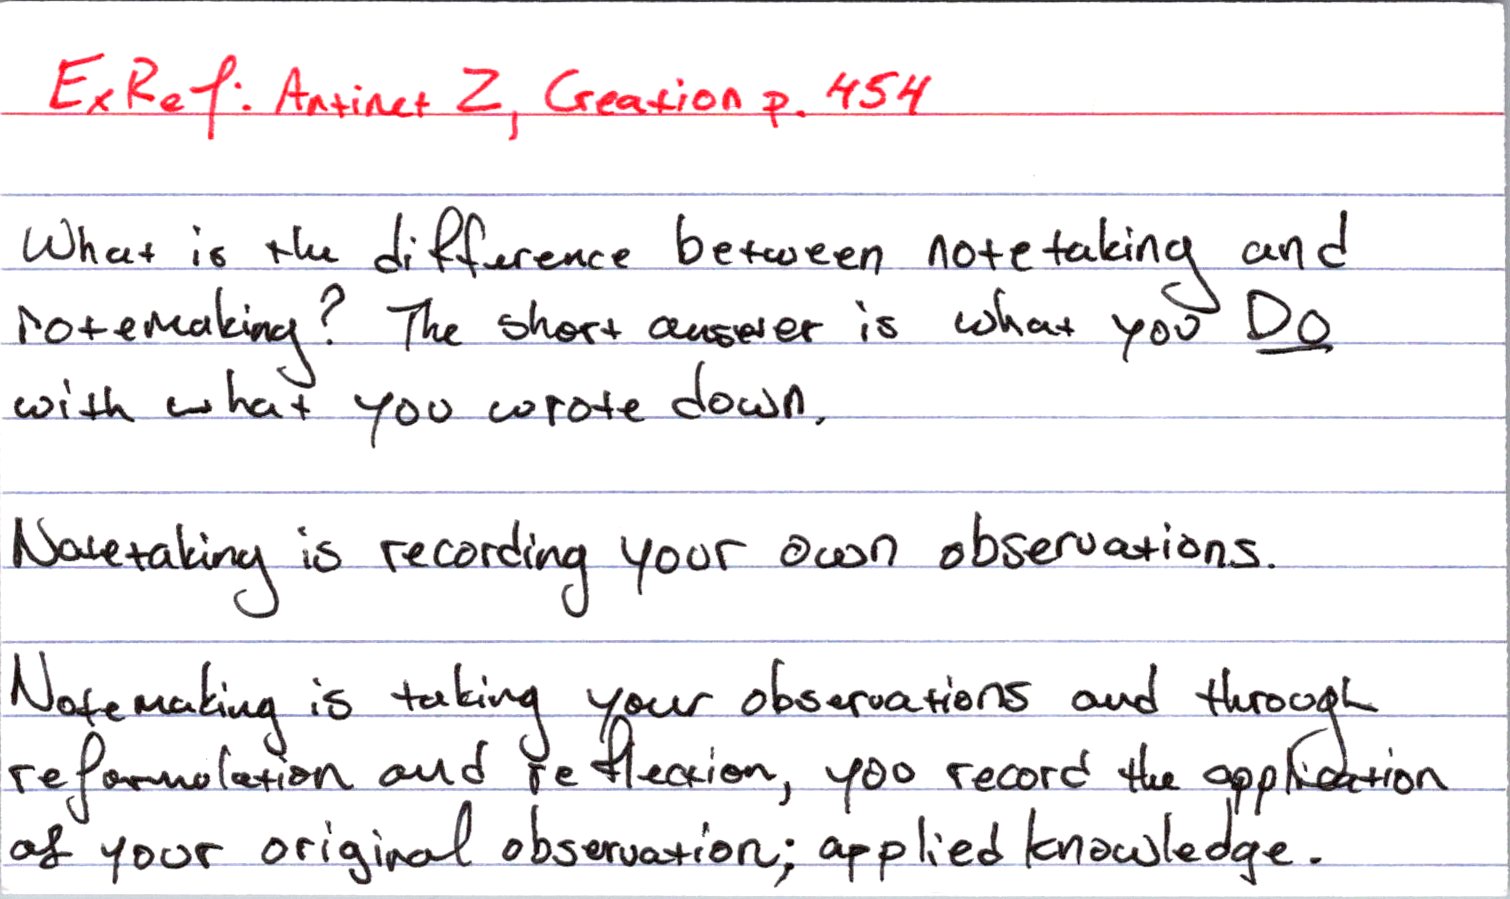 ExRef: Antinet Z, Creation p. 454
What is the difference between notetaking and
notemaking? The short answer is what you DO
with what you wrote down.
Notetaking is recording your own observations.
Notemaking is taking your observations and through
reformulation and reflection, you record the application
of your original observation; applied knowledge.